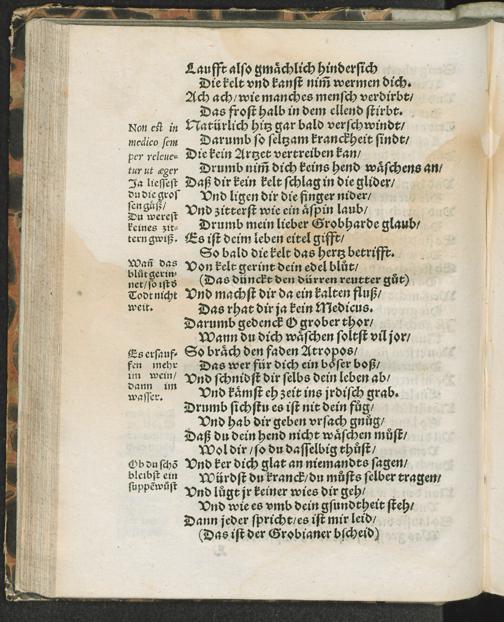 Laufft also gmächlich hindersich
Die kelt vnd kanst nim̃ wermen dich.
Ach ach/wie manches mensch verdirbt/
Das frost halb in dem ellend stirbt.
Natürlich hitz gar bald verschwindt/
Darumb so seltzam kranckheit sindt/
Die kein Artzet vertreiben kan/
Drumb nim̃ dich keins hend wäschens an/
Daß dir kein kelt schlag in die glider/
Vnd ligen dir die finger nider/
Vnd zitterst wie ein äspin laub/
Drumb mein lieber Grobharde glaub/
Es ist deim leben eitel gifft/
So bald die kelt das hertz betrifft.
Von kelt gerint dein edel blüt/
(Das dünckt den dürren reutter güt)
Vnd machst dir da ein kalten fluß/
Das rhat dir ja kein Medicus.
Darumb gedenck O grober thor/
Wann du dich wäschen soltst vil jor/
So bräch den faden Atropos/
Das wer für dich ein böser boß/
Vnd schnidst dir selbs dein leben ab/
Vnd kämst eh zeit ins jrdisch grab.
Drumb sichstu es ist nit dein füg/
Vnd hab dir geben vrsach gnüg/
Daß du dein hend nicht wäschen müst/
Wol dir/so du dasselbig thüst/
Vnd ker dich glat an niemandts sagen/
Würdst du kranck/du müsts selber tragen/
Vnd lügt jr keiner wies dir geh/
Vnd wie es vmb dein gsundtheit steh/
Dann jeder spricht/es ist mir leid/
(Das ist der Grobianer bscheid)
Non est in
medico sem
per releue=
tur ut æger
Ja liessest
du die gros
sen güß/
Du werest
keines zit=
tern gwiß.
Wañ das
blüt gerin=
net/so ists
Todt nicht
weit.
Es ersauf=
fen mehr
im wein/
dann im
wasser.
Ob du schõ
bleibst ein
suppẽwüst